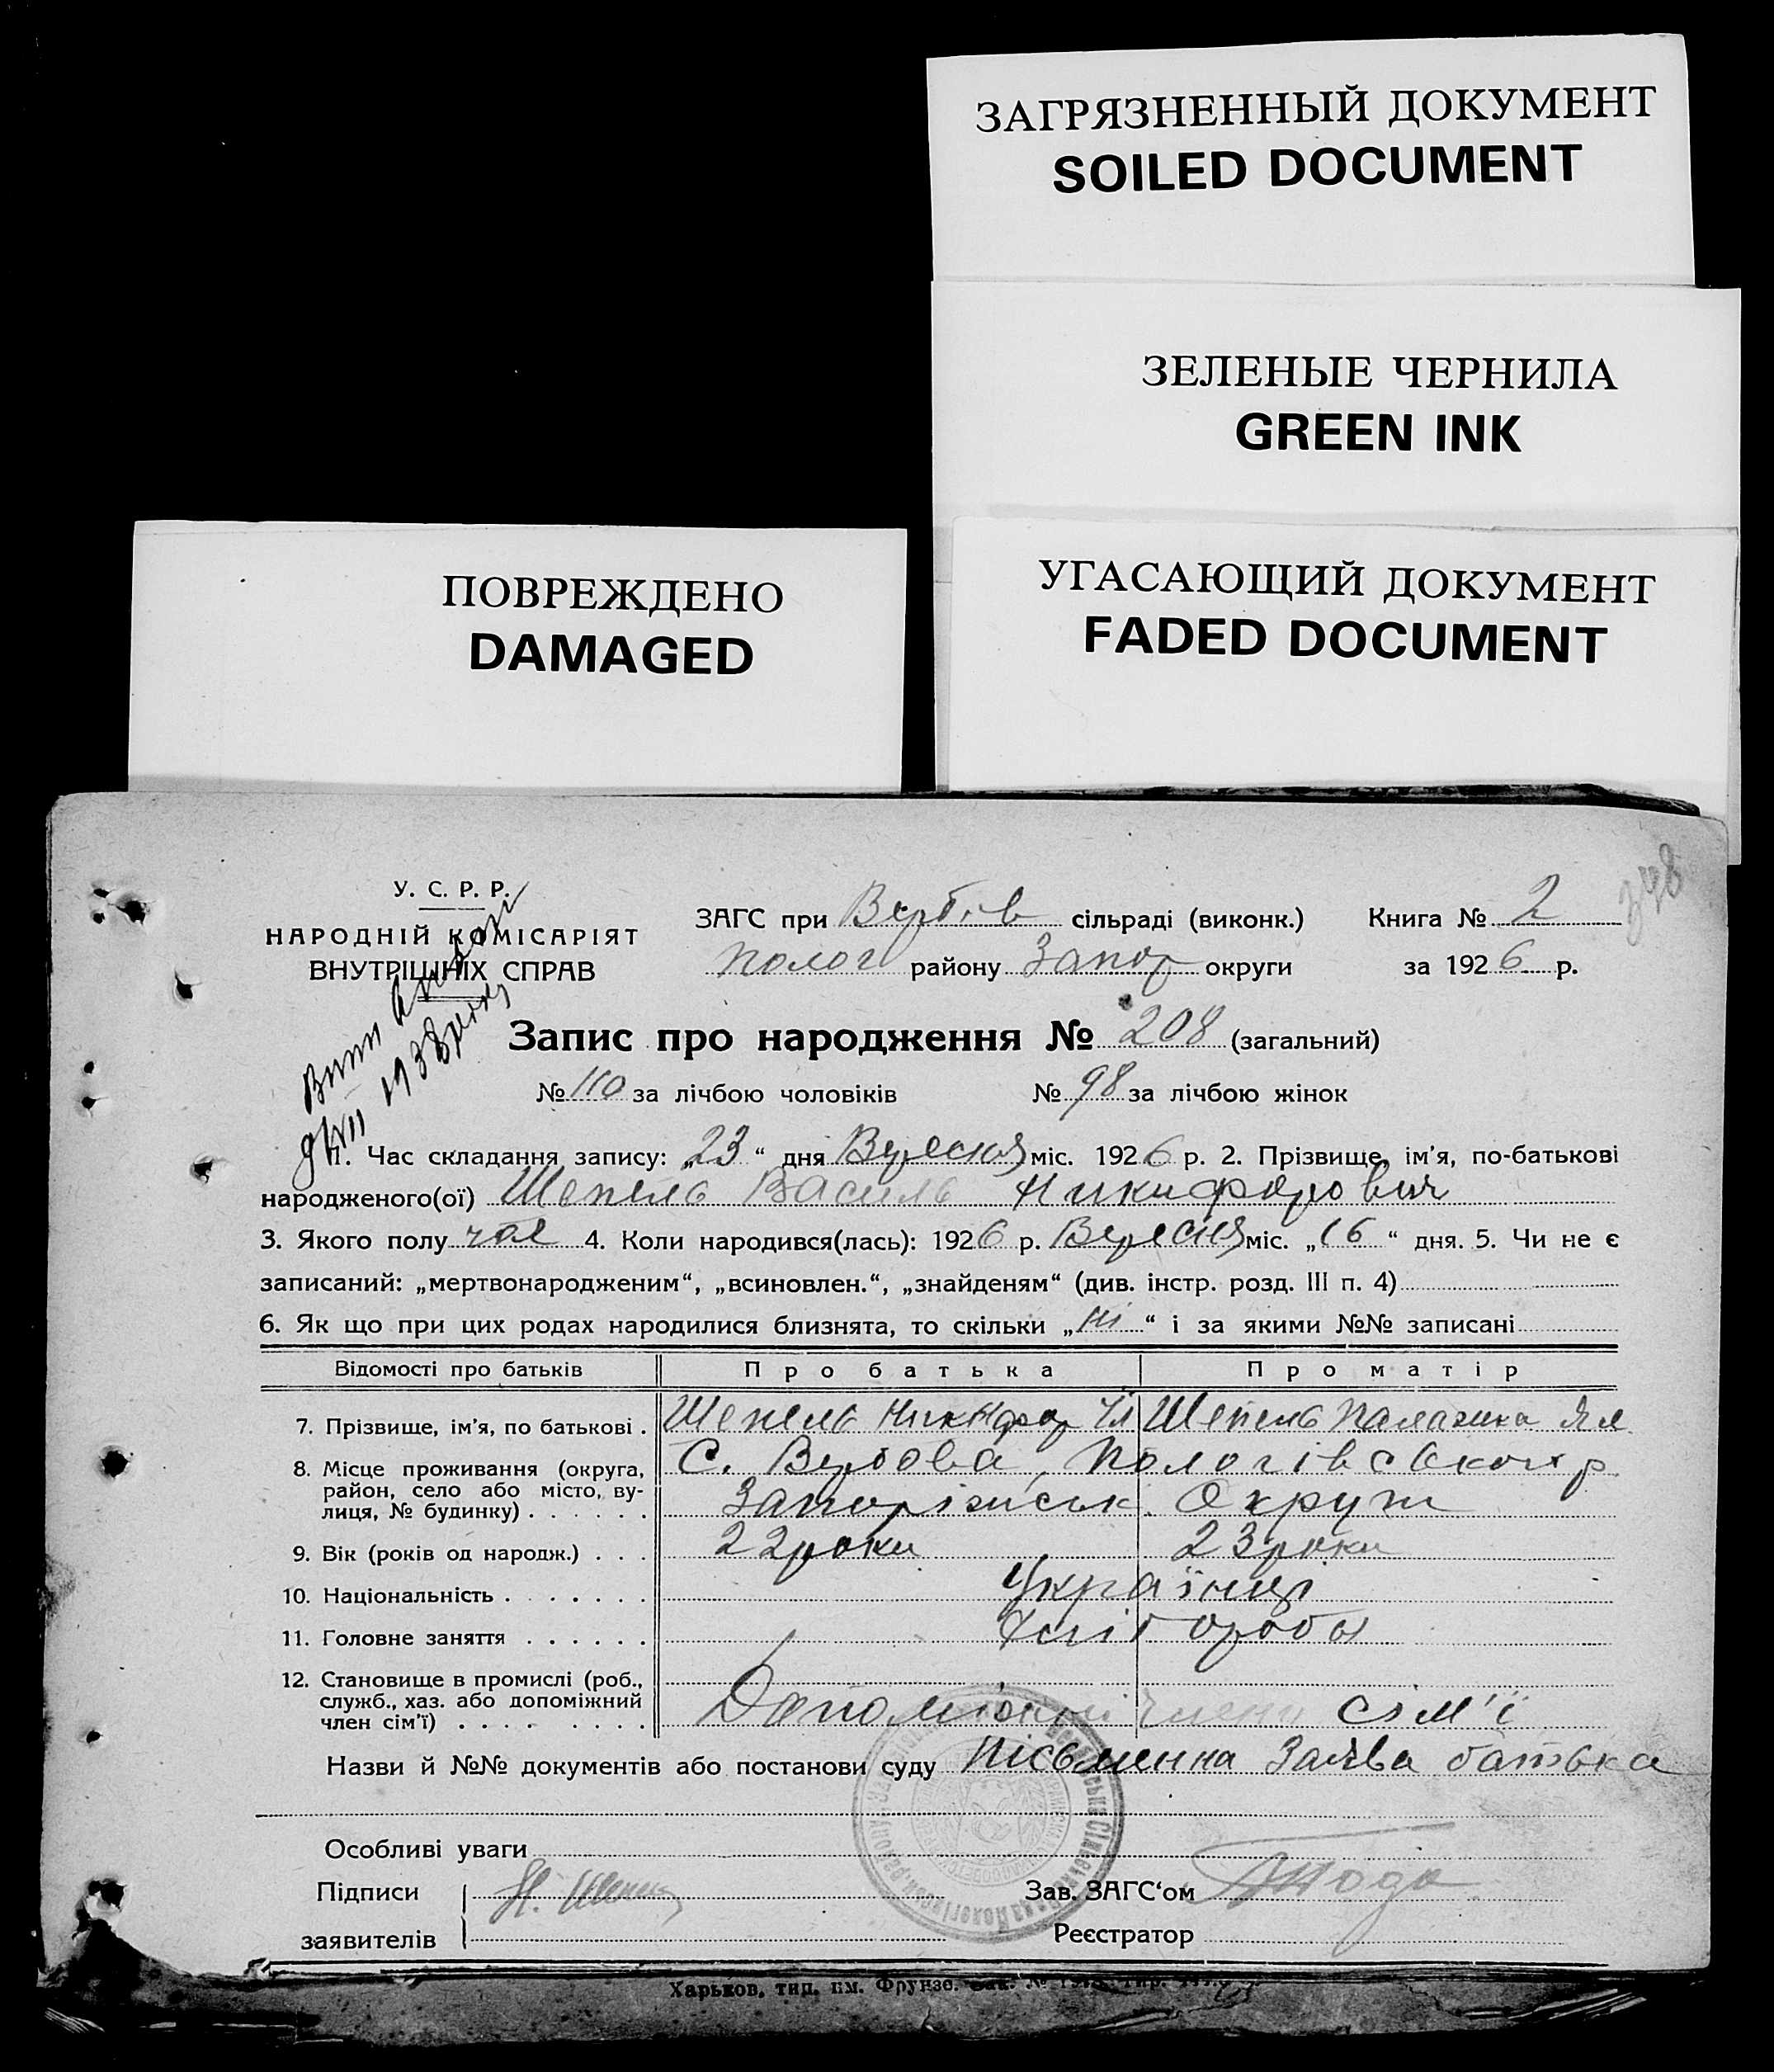 ЗАГРЯЗНЕННЫЙ ДОКУМЕНТ
SOILED DOCUMENT
ЗЕЛЕНЫЕ ЧЕРНИЛА
GREEN INK
ПОВРЕЖДЕНО
DAMAGED
УГАСАЮЩИЙ ДОКУМЕНТ
FADED DOCUMENT
348
У. С. Р. Р.
НАРОДНІЙ КОМІСАРІЯТ
ВНУТРІШНІХ СПРАВ
1938
ЗАГС при Вербов сільраді (виконк.) Книга № 2
Полог району Запор округи за 1926 р.
Запис про народження № 208 (загальний)
№ 110 за лічбою чоловіків № 98 за лічбою жінок
1. Час складання запису: „23“ дня Вересня міс. 1926 р. 2. Прізвище, ім'я, по-батькові
народженого(ої) Шепель Василь Никифорович
3. Якого полу чол 4. Коли народився(лась): 1926 р. Вересня міс. „16“ дня. 5. Чи не є
записаний: „мертвонародженим“, „всиновлен.“, „знайденям“ (див. інстр. розд. III п. 4)
6. Як що при цих родах народилися близнята, то скільки „ні“ і за якими №№ записані
Відомості про батьків Про батька Про матір
7. Прізвище, ім'я, по батькові . Шепель Никифор Іл Шепель Палажка Як
8. Місце проживання (округа, С. Вербова, Пологівського р
район, село або місто, ву-
лиця, № будинку) . . . . . . Запоріжськ. Округи
9. Вік (років од народж.) . . . 22 роки 23 роки
10. Національність . . . . . . . Українці
11. Головне заняття . . . . . . Хліборобы
12. Становище в промислі (роб.,
служб., хаз. або допоміжний
член сім'ї) . . . . . . . . Допоміжні члени сім'ї
Назви й №№ документів або постанови суду Пісьменна Заява батька
Особливі уваги
Підписи Н. Шепель Зав. ЗАГС'ом
заявителів Реєстратор
Харьков, тип. им. Фрунзе.